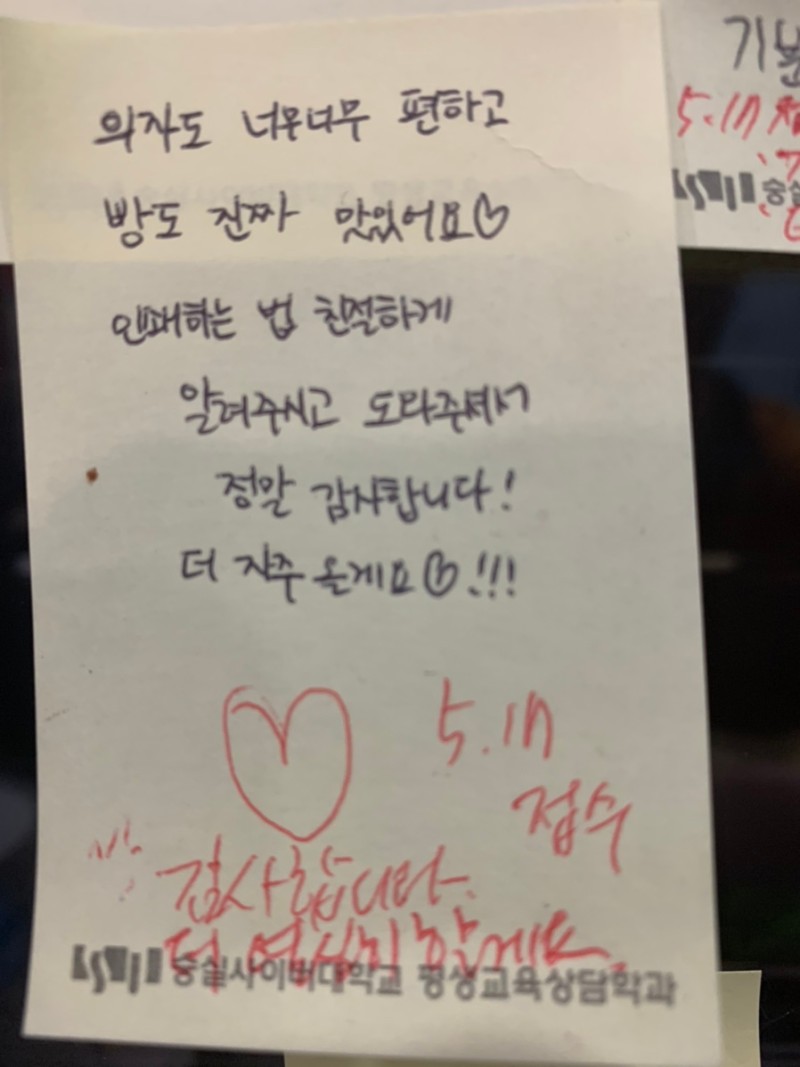 의자도 너무너무 편하고
빵도 진짜 맛있어요♡
인쇄하는 법 친절하게
알려주시고 도와주셔서
정말 감사합니다!
더 자주 올게요♡!!!
5.17
접수
감사합니다.
더 열심히 할게요.
KSCU 숭실사이버대학교 평생교육상담학과
기분
5.17
숭실